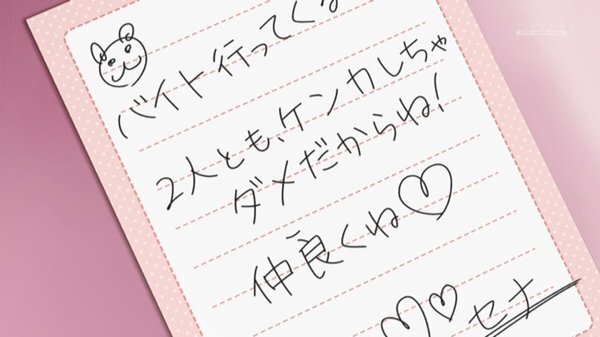 バイト行ってくる
2人とも、ケンカしちゃ
ダメだからね!
仲良くね♡
♡♡セナ